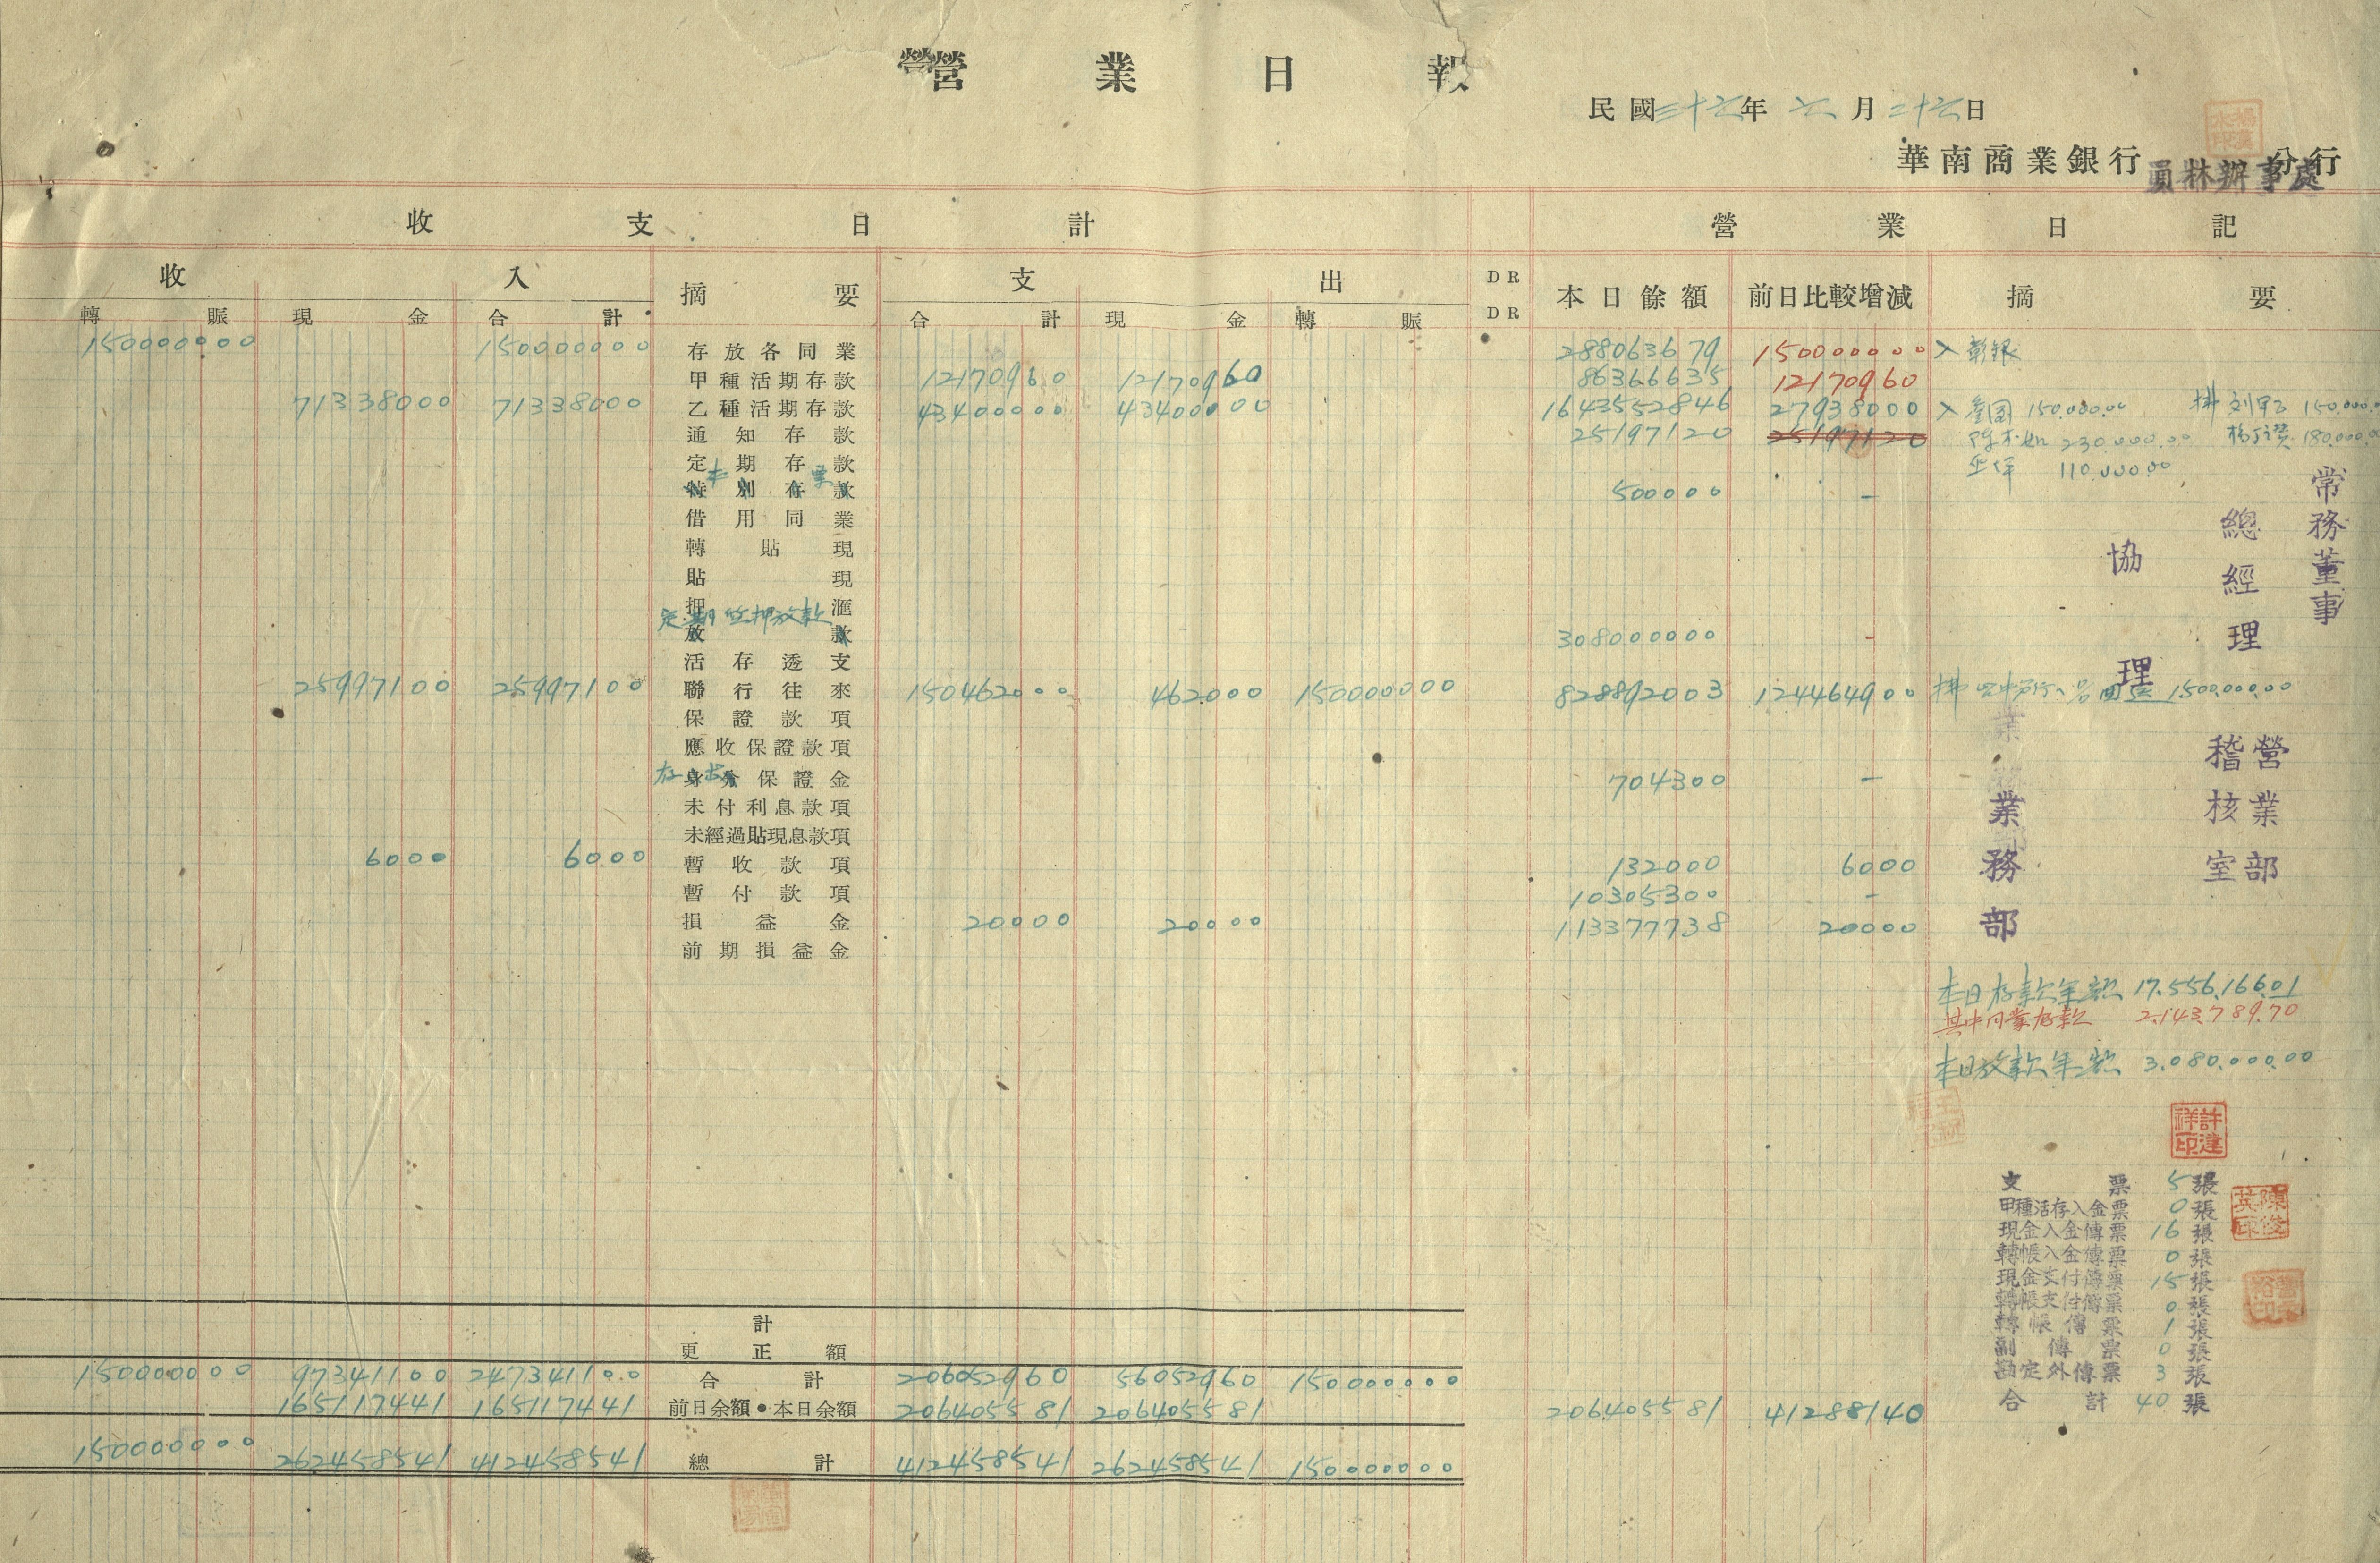 營業日報
民國三十六年六月二十六日
華南商業銀行 員林辦事處 分行
收支日計 營業日記
收入 摘要 支出 DR 本日餘額 前日比較增減 摘要
轉賬 現金 合計 合計 現金 轉賬 DR
150000000 150000000 存放各同業 288063679 150000000 入 彰銀
甲種活期存款 12170960 12170960 86366635 12170960
71338000 71338000 乙種活期存款 43400000 43400000 1643552846 27938000 入 150.000.00 拂 150.000.
通知存款 25197120 25197120 230.000.00 180.000.
定期存款 110.000.00
特別存款 本票 500000 -
借用同業
轉貼現
貼現
押滙
放款 定期質押放款 308000000 -
活存透支
25997100 25997100 聯行往來 150462000 462000 150000000 828892003 124464900 拂 1.500.000.00
保證款項
應收保證款項
身分保證金 存出 704300 -
未付利息款項
未經過貼現息款項
6000 6000 暫收款項 132000 6000
暫付款項 10305300 -
損益金 20000 20000 113377738 20000
前期損益金
常務董事
總經理
協理
營業部
稽核室
業務部
本日存款年額 17.556.166.01
其中同業存款 2.143.789.70
本日放款年額 3.080.000.00
許建祥印
支票 5張
甲種活存入金票 0張
陳俊英印
現金入金傳票 16張
轉帳入金傳票 0張
現金支付傳票 15張
轉帳支付傳票 0張
轉帳傳票 1張
副傳票 0張
勘定外傳票 3張
合計 40張
計
更正額
150000000 97341100 247341100 合計 206052960 56052960 150000000
165117441 165117441 前日余額•本日余額 206405581 206405581 206405581 41288140
150000000 262458541 412458541 總計 412458541 262458541 150000000